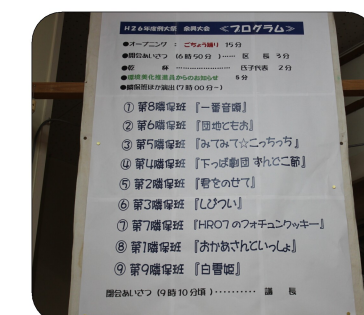 H26年度例大祭 余興大会 ≪プログラム≫
●オープニング : ごちょう踊り 15分
●開会あいさつ (6時50分) …… 区 長 3分
●乾 杯 ……………………… 氏子代表 2分
●環境美化推進員からのお知らせ 5分
●隣保班ほか演出 (7時00分~)
① 第8隣保班 『一番音頭』
② 第6隣保班 『団地ともお』
③ 第5隣保班 『みてみて☆こっちっち』
④ 第4隣保班 『下っぱ劇団 ずんどこ節』
⑤ 第2隣保班 『君をのせて』
⑥ 第3隣保班 『しびつい』
⑦ 第7隣保班 『HRO7のフォチュンクッキー』
⑧ 第1隣保班 『おかあさんといっしょ』
⑨ 第9隣保班 『白雪姫』
閉会あいさつ (9時10分頃) ·········· 議 長